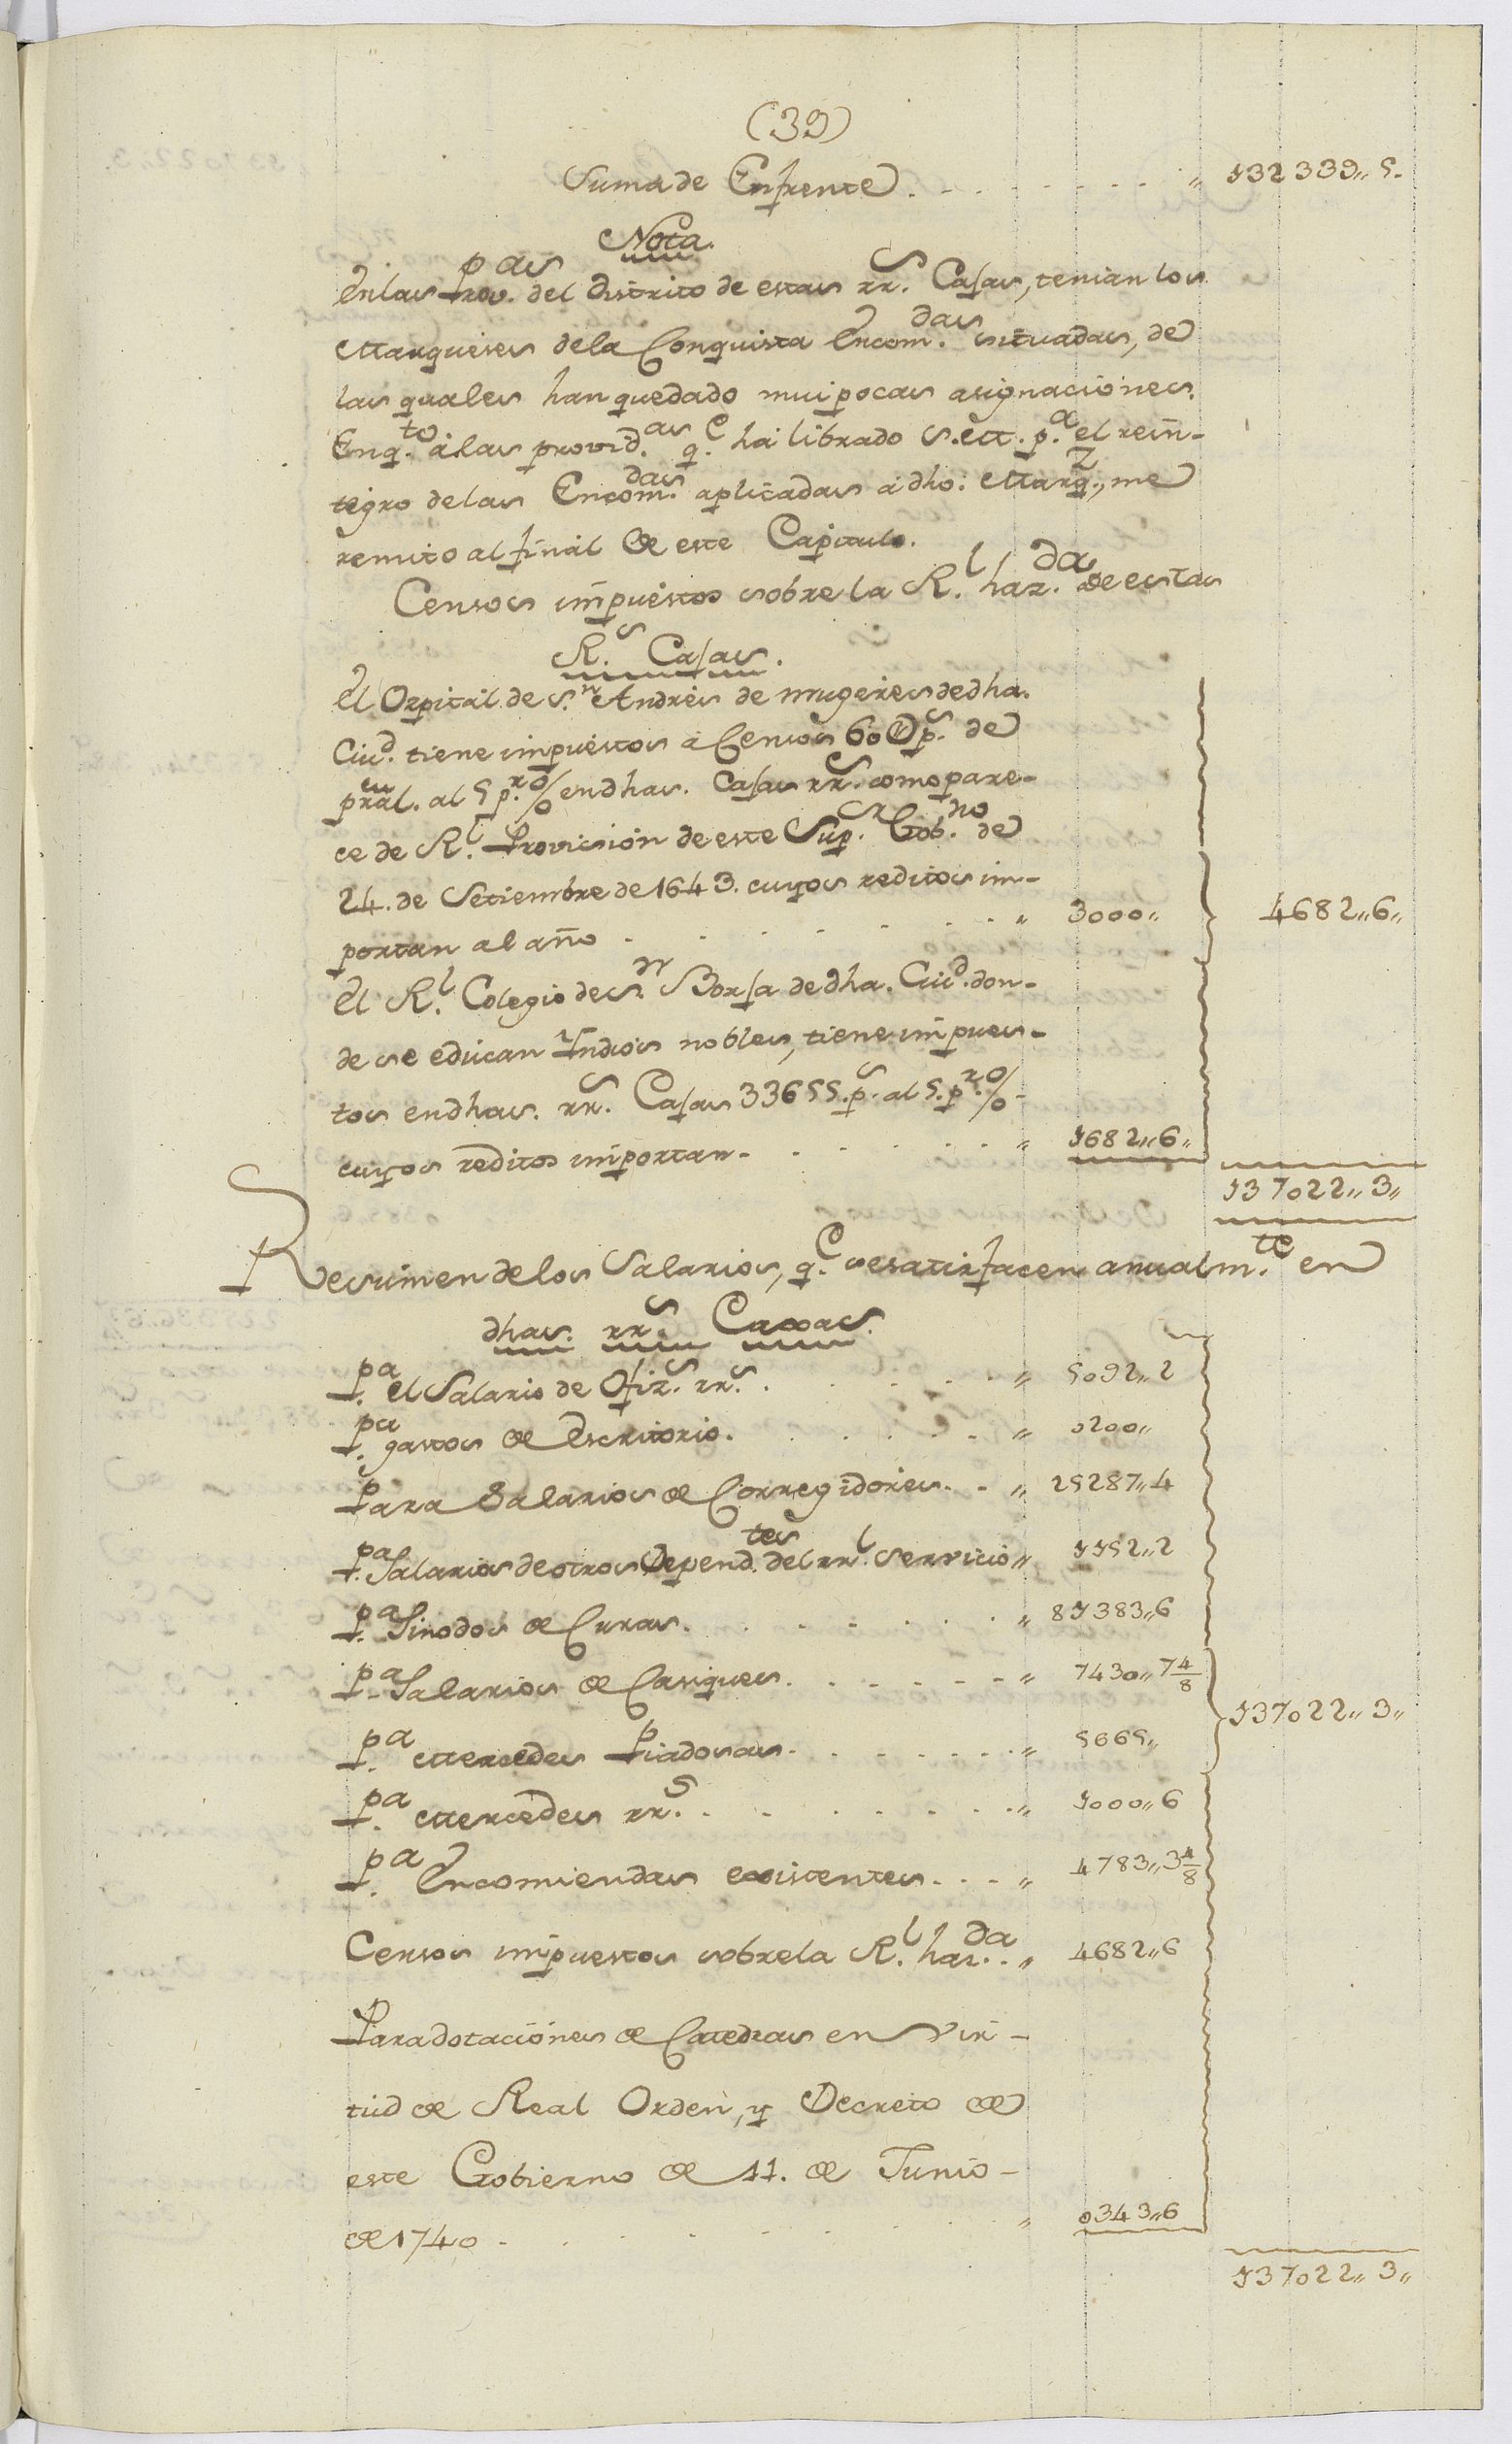 (39)
Suma de Enfrente . . . . . . . . " 132339,, 5.
Nota.
En las Prov.as del Distrito de estas rr.s CaJas, tenian los
Marqueses de la Conquista Encom.das situadas, de
las quales han quedado mui pocas asignaciones.
Enq.to à las provid.as q.e há librado S. M. p.a el rein-
tegro de las Encom.das aplicadas à dho. Marq.z, me
remito al final de este Capitulo.
Censos impuestos sobre la R.l haz.da de estas
R.s CaJas.
El Ospital de S.n Andrés de mugeres de dha.
Ciu.d tiene impuestos à Censos 60 @ p.s de
pral. al 5 p.r % en dhas. CaJas rr.s como pare-
ce de R.l Provision de este Sup.or Gob.no de
24. de Setiembre de 1643. cuyos reditos im-
portan al año . . . . . . . . " 3000,, 4682,, 6,,
El R.l Colegio de S.n Borja de dha. Ciu.d don-
de se educan Yndios nobles, tiene impues-
tos en dhas. rr.s CaJas 33655. p.s al 5. p.r % -
cuyos reditos importan - . . . . . " 1682,, 6,,
137022,, 3,,
Resumen de los Salarios, q.e se satisfacen anualm.te en
dhas. rr.s Caxas.
P.a el Salario de Ofiz.s rr.s . . . . . " 5092,, 2
P.a gastos de Escritorio. . . . . . " 0200,,
Para Salarios de Corregidores. . - " 25287,, 4
P.a Salarios de otros Depend.tes del rr.l Servicio " 1152,, 2
P.a Sinodos de Curas. . . . . . . " 81383,, 6
P.a Salarios de Casiques. . . . . . " 7430,, 7 4/8
P.a Mercedes Piadosas. . . . . . . " 5665,, 137022,, 3,,
P.a Mercedes rr.s . . . . . . . . " 1000,, 6
P.a Encomiendas existentes. . . . " 4783,, 3 4/8
Censos impuestos sobre la R.l haz.da . " 4682,, 6
Para dotaciónes de Catedras en vir-
tud de Real Orden, y Decreto de
este Gobierno de 11. de Junio -
de 1740 . . . . . . . . . " 0343,, 6
137022,, 3,,